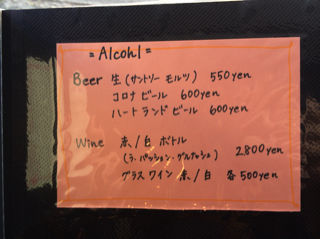 = Alcohl =
Beer 生 (サントリー モルツ) 550yen
コロナビール 600yen
ハートランドビール 600yen
Wine 赤/白 ボトル
(ラ・パッション・グルナッシュ) 2.800yen
グラスワイン 赤/白 各500yen